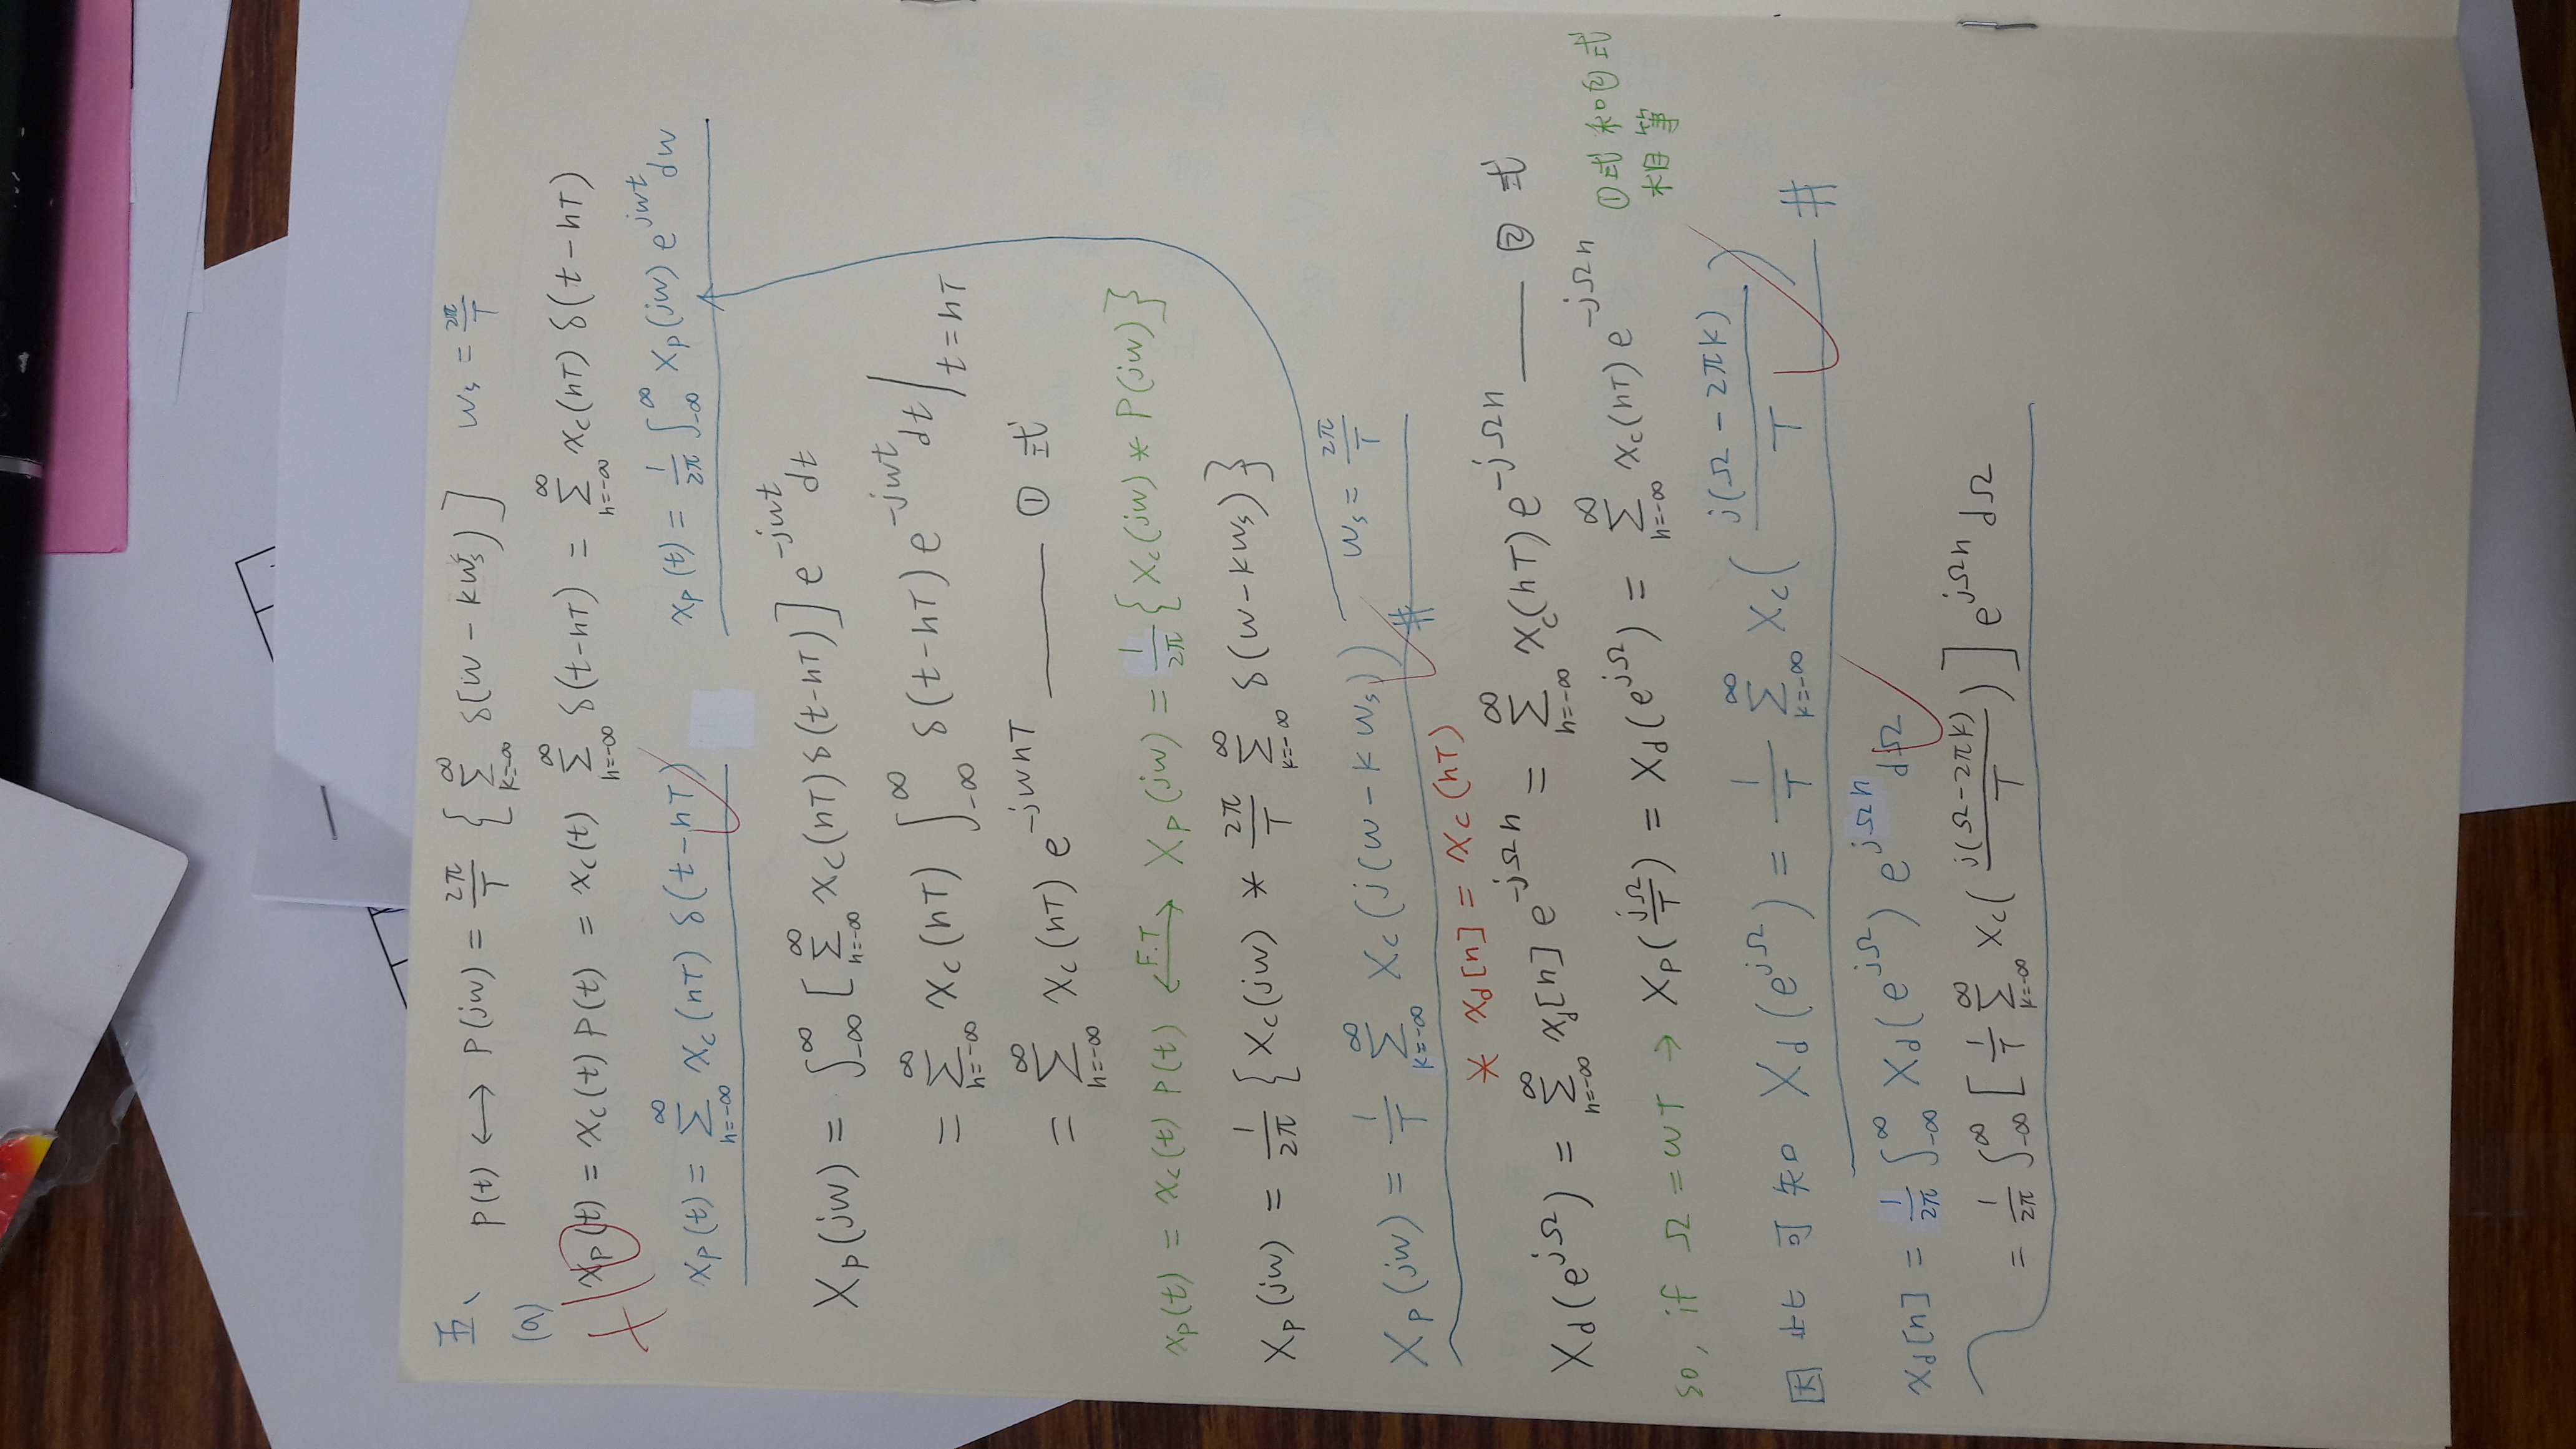 五、 p(t) ↔ P(jw) = 2π/T { ∑_{k=-∞}^{∞} δ(w - kws) ] ws = 2π/T
(a)
+10 xp(t) = xc(t) p(t) = xc(t) ∑_{n=-∞}^{∞} δ(t-nT) = ∑_{n=-∞}^{∞} xc(nT) δ(t-nT)
xp(t) = ∑_{n=-∞}^{∞} xc(nT) δ(t-nT) xp(t) = 1/2π ∫_{-∞}^{∞} Xp(jw) e^{jwt} dw
Xp(jw) = ∫_{-∞}^{∞} [ ∑_{n=-∞}^{∞} xc(nT) δ(t-nT) ] e^{-jwt} dt
= ∑_{n=-∞}^{∞} xc(nT) ∫_{-∞}^{∞} δ(t-nT) e^{-jwt} dt |_{t=nT}
= ∑_{n=-∞}^{∞} xc(nT) e^{-jwnT} —— ① 式
xp(t) = xc(t) p(t) ⟷^{F.T} Xp(jw) = 1/2π { Xc(jw) * P(jw) }
Xp(jw) = 1/2π { Xc(jw) * 2π/T ∑_{k=-∞}^{∞} δ(w-kws) }
Xp(jw) = 1/T ∑_{k=-∞}^{∞} Xc(j(w-kws)) # ws = 2π/T
* xd[n] = xc(nT)
Xd(e^{jΩ}) = ∑_{n=-∞}^{∞} xd[n] e^{-jΩn} = ∑_{n=-∞}^{∞} xc(nT) e^{-jΩn} —— ② 式
so, if Ω = wT → Xp(jΩ/T) = Xd(e^{jΩ}) = ∑_{n=-∞}^{∞} xc(nT) e^{-jΩn} ①式和②式
相等
因此可知 Xd(e^{jΩ}) = 1/T ∑_{k=-∞}^{∞} Xc( j(Ω-2πk)/T ) #
xd[n] = 1/2π ∫_{-∞}^{∞} Xd(e^{jΩ}) e^{jΩn} dΩ
= 1/2π ∫_{-∞}^{∞} [ 1/T ∑_{k=-∞}^{∞} Xc( j(Ω-2πk)/T ) ] e^{jΩn} dΩ